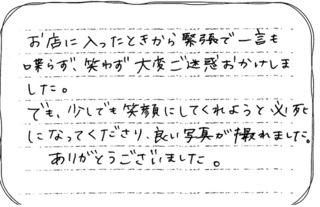 お店に入ったときから緊張で一言も
喋らず、笑わず大変ご迷惑おかけしま
した。
でも、少しでも笑顔にしてくれようと必死
になってくださり、良い写真が撮れました。
ありがとうございました。